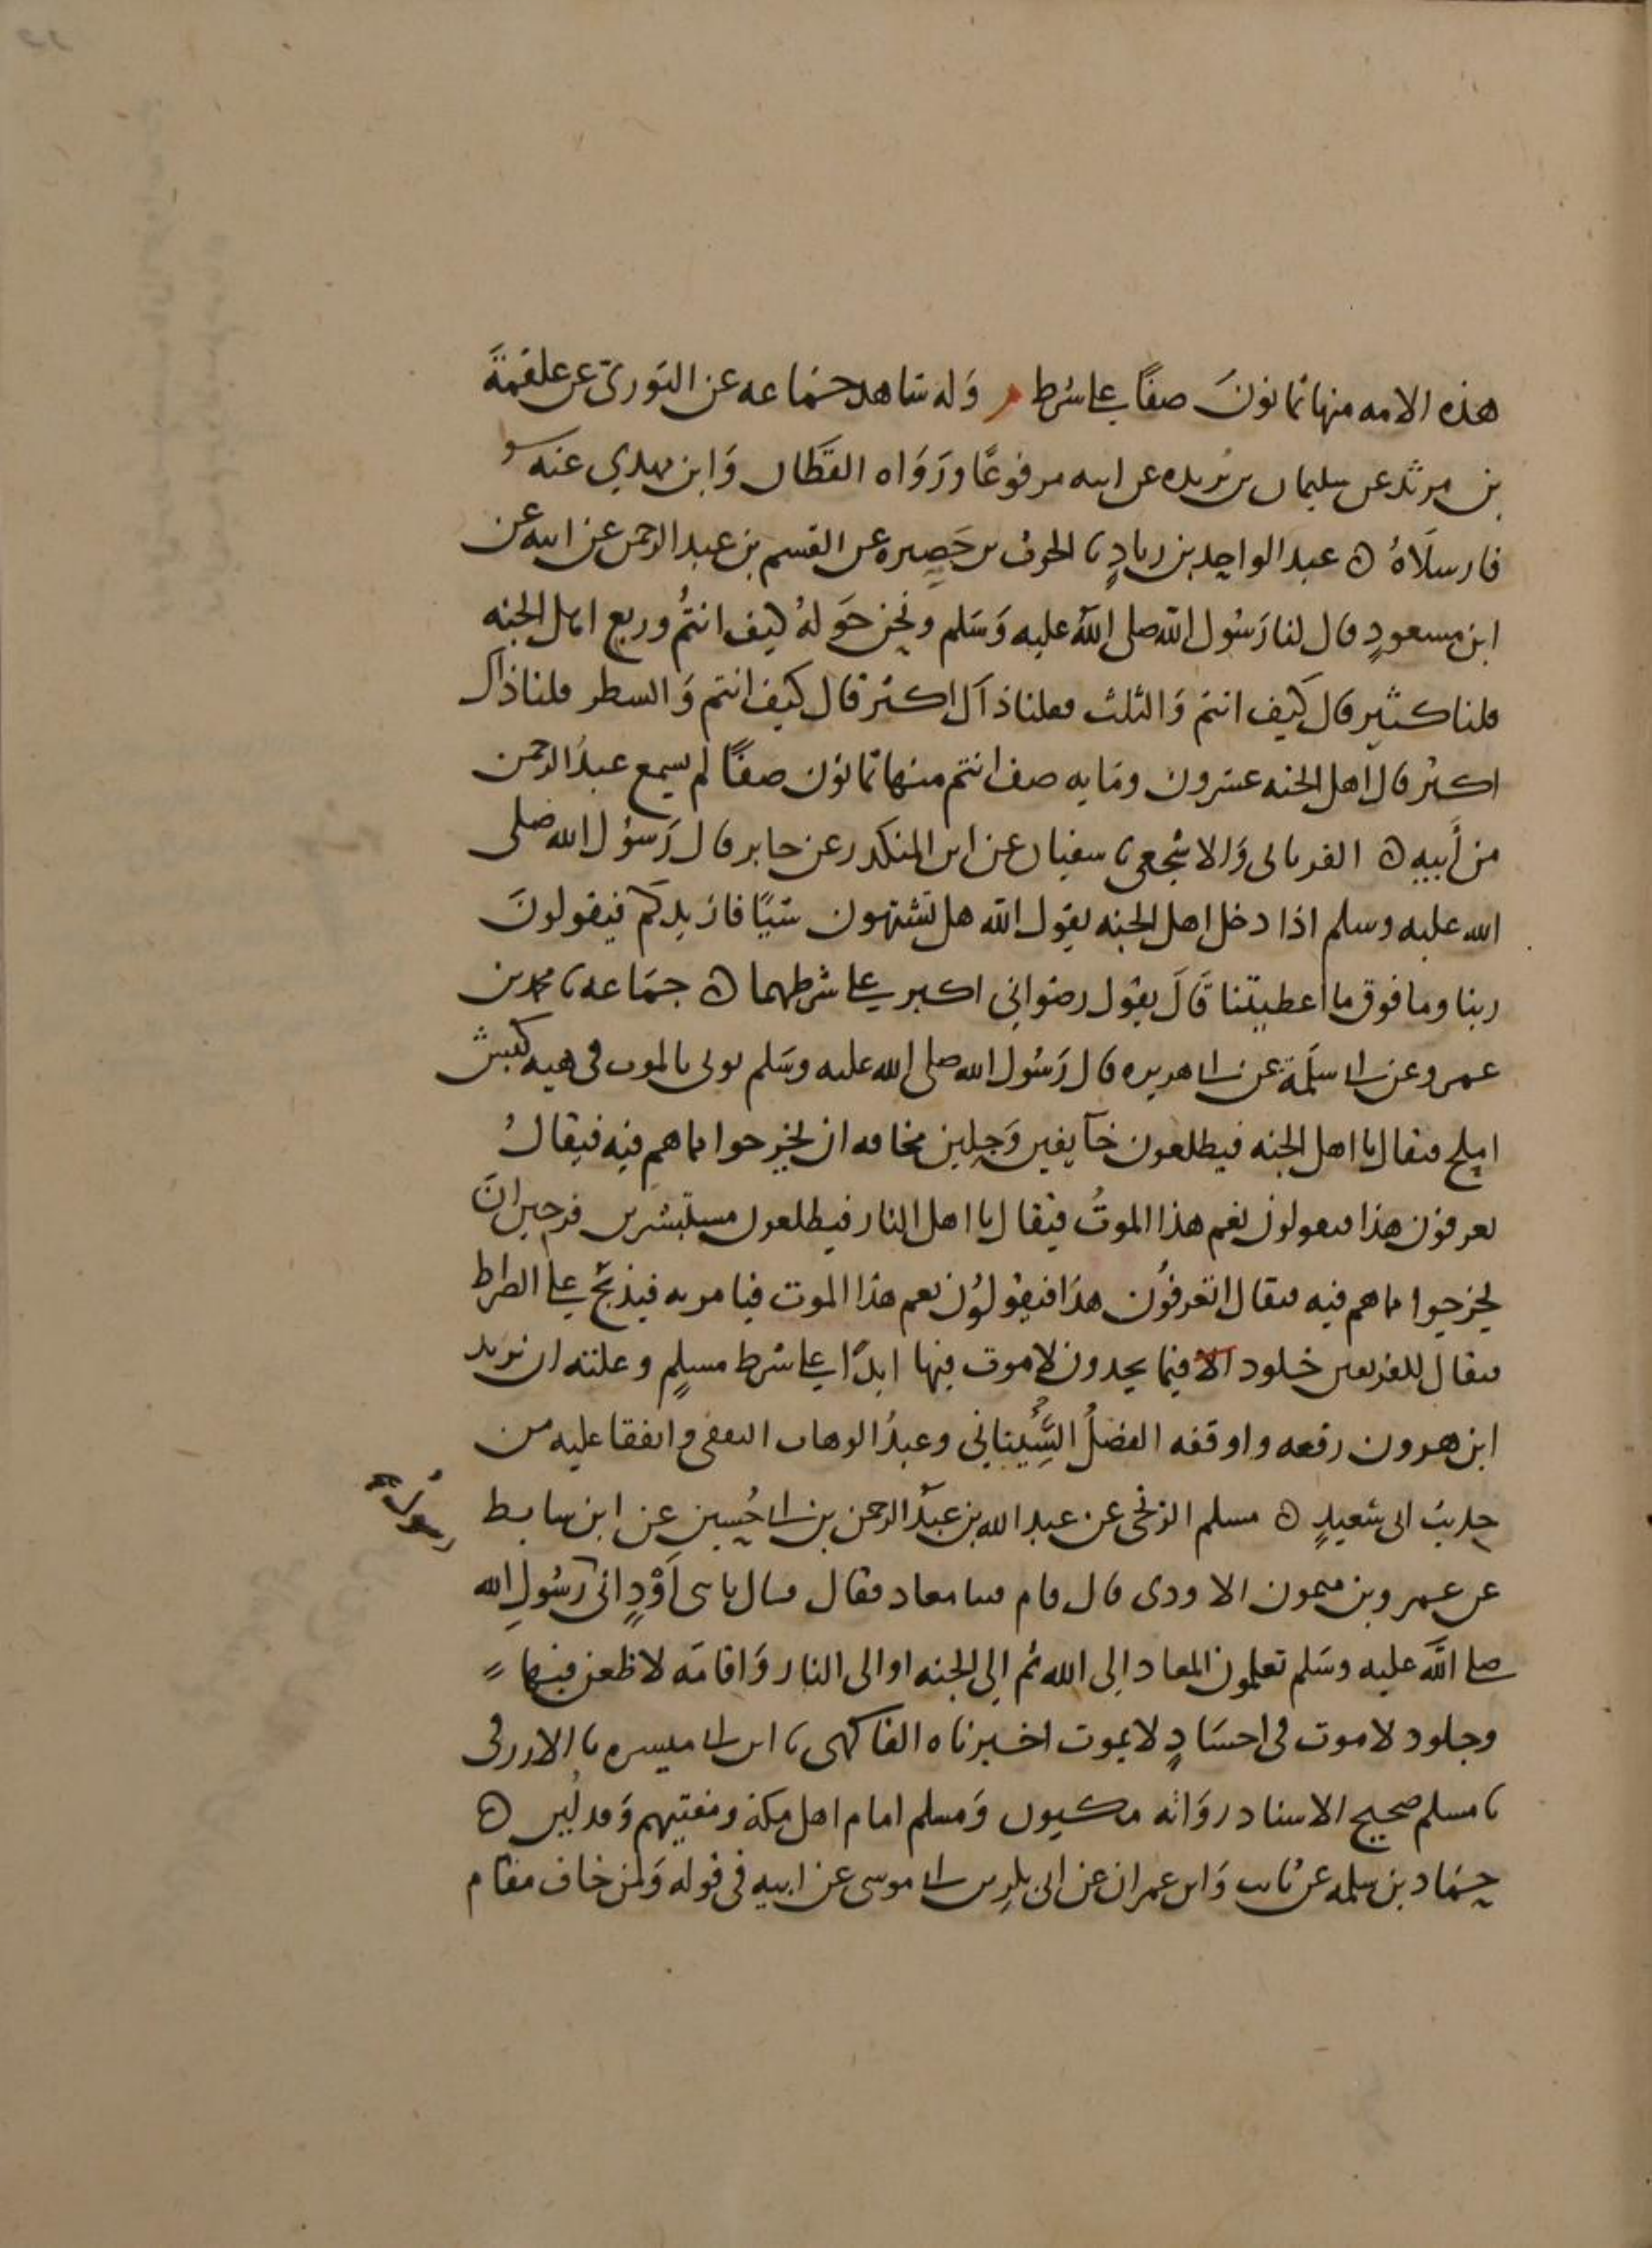 هذه الامه منها ثمانون صفًا على شرط م وَله شاهد جماعه عن الثوري عن علقمةَ
بن مرثد عن سليمان بن بُريده عن ابيه مرفوعًا ورَوَاه القطان وَابن مهدي عنه
فارسلَاهُ ٥ عبد الواحِد بن زيادٍ نا الحرث بن حَصِيره عن القسم بن عبد الرحمن عن ابيه عن
ابن مسعودٍ قال لنا رَسُول الله صلى اللهُ عليه وَسَلم ونحن حَولهُ كيف انتمُ وربع اهل الجنه
قلنا كثير قال كيف انتم وَالثلث فقلنا ذاك اكثر قال كيف انتم وَالشطر قلنا ذاك
اكثر قال اهل الجنه عشرون ومَايه صف انتم منها ثمانون صفًا لم يسمع عبدُ الرحمن
من أبيهِ ٥ الفريابى وَالاشجعى نا سفيان عن ابن المنكدر عن جابر قال رَسوُل الله صلى
الله عليه وسلم اذا دخل اهل الجنه يقول الله هل تشتهون شيًا فازيدكم فيقولونَ
ربنا وما فوق ما اعطيتنا قَالَ يقول رضواني اكبر على شرطهما ٥ جمَاعه نا محمد بن
عمرو عن ابى سلَمة عن ابى هريره قال رَسُول الله صلى الله عليه وسَلم يوتى بالموت فى هيه كبش
املح فيقال يا اهل الجنه فيطلعون خآيفين وَجِلين مخافه ان يخرجوا مما هم فيه فيقالُ
تعرفون هذا فيقولون نعم هذا الموتُ فيقال يا اهل النار فيطلعون مستبشرين فرحين انَ
يخرجوا مما هم فيه فيقال اتعرفُون هذا فيقولوُن نعم هذا الموت فيامر به فيذبحُ على الصراط
فيقال للفريقين خلود الا فيما يجدون لا موت فيها ابدًا على شرط مسلمٍ وعلته ان يزيد
ابن هرون رفعه واوقفه الفضلُ السِّيناني وعبدُ الوهاب الثقفى واتفقا عليه من
حديث ابى سَعيدٍ ٥ مسلم الزنجى عن عبد الله بن عبدَ الرحمن بن ابى حُسين عن ابن سابط
رسولُ
عن عمرو بن ميمون الاودى قال قام فينا معاد فقال فقال يا بنى أَوْدٍ انى رَسُولِ الله
صلى اللَه عليه وسَلم تعلمون المعاد اِلى الله ثم اِلى الجنه او الى النار وَاقامَه لا ظعن فيها
وخلود لا موت فى اجسَادٍ لا يموت اخبرناه الفاكهى نا ابن ابى ميسره نا الازرقى
نا مسلم صحيح الاسناد روَاته مكيون وَمسلم امام اهل مكة ومفتيهم وَقد لُين ٥
حمَاد بن سلمه عن ثابت وَابى عمران عن ابى بكر بن ابى موسى عن ابيه فى قوله وَلمن خاف مقام